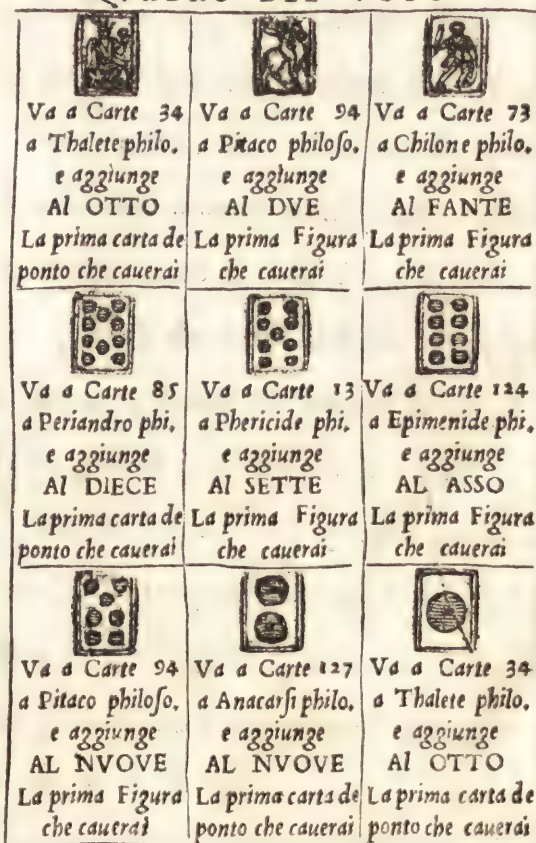 Va a Carte 34
a Thalete philo.
e aggiunge
Al OTTO
La prima carta de
ponto che cauerai
Va a Carte 94
a Pitaco philoſo.
e aggiunge
Al DVE
La prima Figura
che cauerai
Va a Carte 73
a Chilone philo.
e aggiunge
Al FANTE
La prima Figura
che cauerai
Va a Carte 85
a Periandro phi.
e aggiunge
Al DIECE
La prima carta de
ponto che cauerai
Va a Carte 13
a Phericide phi.
e aggiunge
Al SETTE
La prima Figura
che cauerai
Va a Carte 124
a Epimenide phi.
e aggiunge
AL ASSO
La prima Figura
che cauerai
Va a Carte 94
a Pitaco philoſo.
e aggiunge
AL NVOVE
La prima Figura
che cauerai
Va a Carte 127
a Anacarſi philo.
e aggiunge
AL NVOVE
La prima carta de
ponto che cauerai
Va a Carte 34
a Thalete philo.
e aggiunge
Al OTTO
La prima carta de
ponto che cauerai